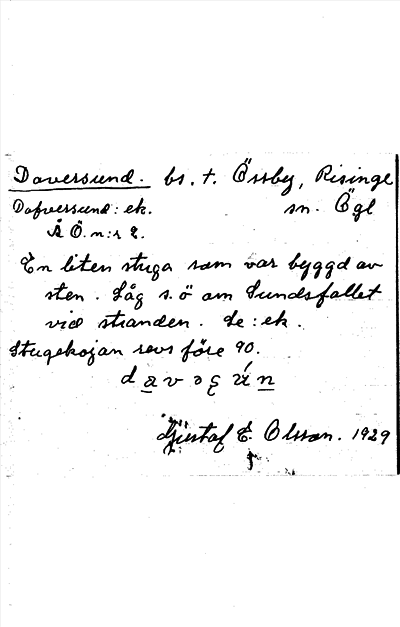 Daversund. bs. t. Össby, Risinge
Dafversund: ek. sn. Ögl
Å Ö. n:r 2.
En liten stuga som var byggd av
sten. Låg s. ö om Sundsfallet
vid stranden. Se: ek.
Stugekojan revs före 90.
d a v ə ʂ ú n
Gustaf E. Olsson. 1929